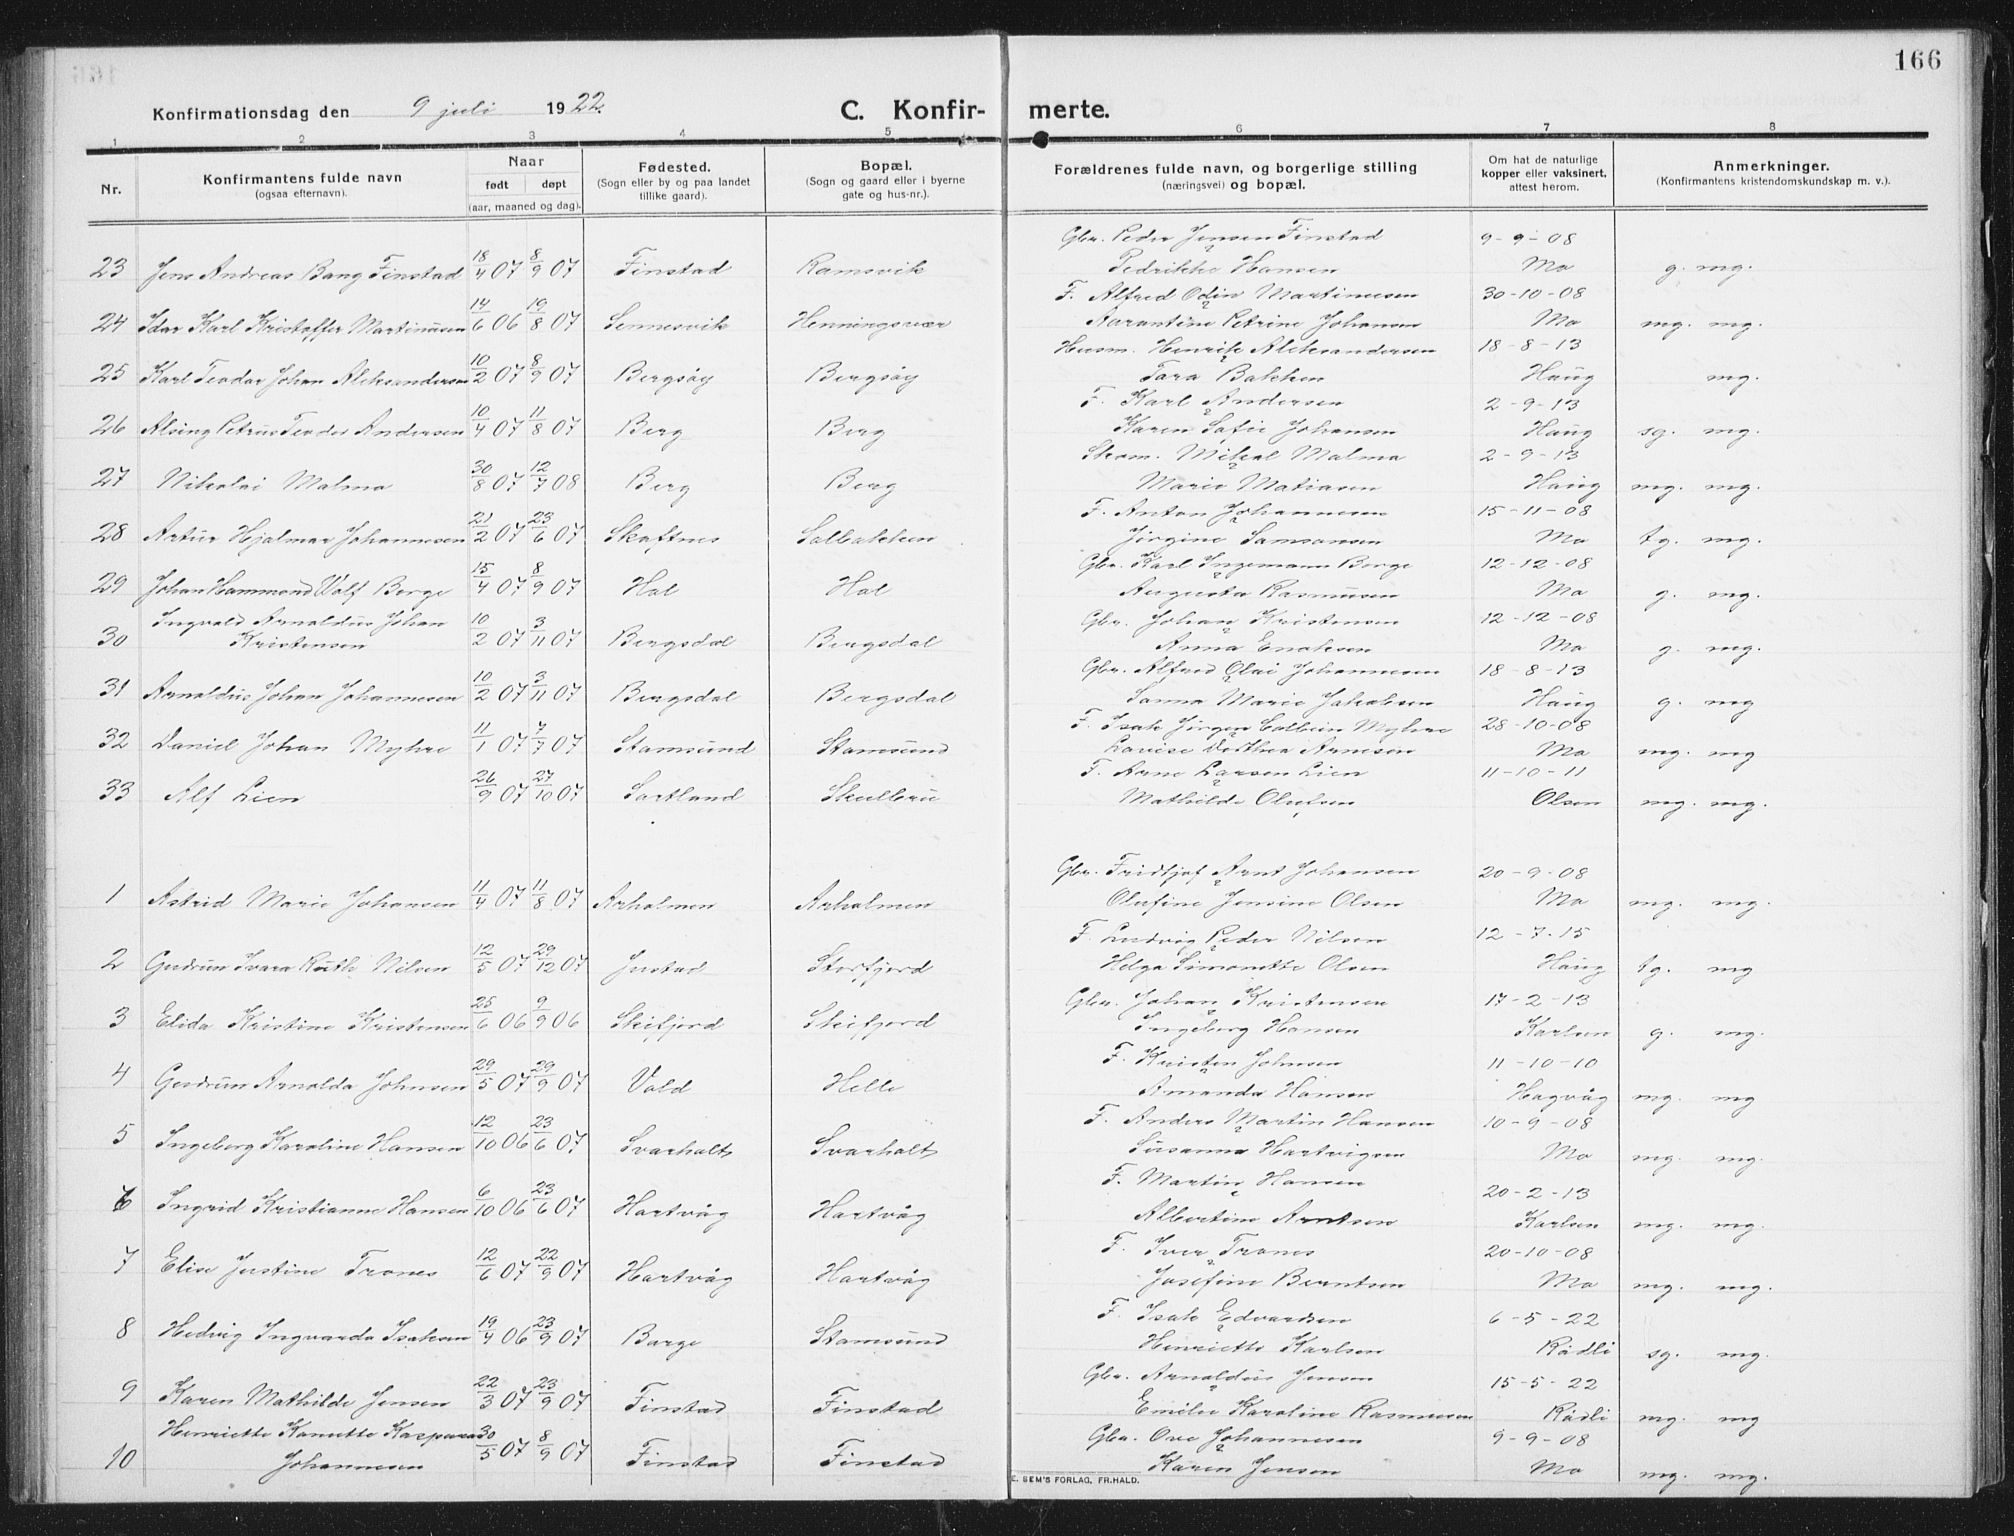 166
Konfirmationsdag den 9 juli 1922.
C. Konfirmerte.
1 2 3 4 5 6 7 8
Nr.
Konfirmantens fulde navn
(ogsaa efternavn).
Naar
født døpt
(aar, maaned og dag).
Fødested.
(Sogn eller by og paa landet
tillike gaard).
Bopæl.
(Sogn og gaard eller i byerne
gate og hus-nr.).
Forældrenes fulde navn, og borgerlige stilling
(næringsvei) og bopæl.
Om hat de naturlige
kopper eller vaksinert,
attest herom.
Anmerkninger.
(Konfirmantens kristendomskundskap m. v.).
Gbr. Peder Jensen Finstad 9-9-08
23 Jens Andreas Bang Finstad 18/4 07 8/9 07 Finstad Ramsvik Pedrikke Hansen Mo g. mg.
F. Alfred Odin Martinusen 30-10-08
24 Idar Karl Kristoffer Martinusen 14/6 06 19/8 07 Sennesvik Henningsvær Aarantine Petrine Johansen Mo mg. mg.
Husm. Henrik Aleksandersen 18-8-13
25 Karl Teodor Johan Aleksandersen 10/2 07 8/9 07 Bergsøy Bergsøy Tara Bakken Haug mg.
F. Karl Andersen 2-9-13
26 Alsing Petrus Teodor Andersen 10/4 07 11/8 07 Berg Berg Karen Sofie Johansen Haug sg. mg.
Skom. Mikal Malmo 2-9-13
27 Nikolai Malmo 30/8 07 12/7 08 Berg Berg Marie Matiasen Haug mg. mg.
F. Anton Johannesen 15-11-08
28 Artur Hjalmar Johannesen 21/2 07 23/6 07 Skaftnes Solbakken Jørgine Samsonsen Mo tg. mg.
Gbr. Karl Ingemann Borge 12-12-08
29 Johan Hammond Wolf Borge 15/4 07 8/9 07 Hol Hol Augusta Rasmusen Mo g. mg.
Ingvald Arnoldus Johan Gbr. Johan Kristensen 12-12-08
30 Kristensen 10/2 07 3/11 07 Bergsdal Bergsdal Anna Enoksen Mo g. mg.
Gbr. Alfred Olai Johannesen 18-8-13
31 Arnoldus Johan Johannesen 10/2 07 3/11 07 Bergsdal Bergsdal Sanna Marie Jakobsen Haug g. mg
F. Isak Jørgen Colbein Myhre 28-10-08
32 Daniel Johan Myhre 11/1 07 7/7 07 Stamsund Stamsund Lovise Dorthea Arnesen Mo mg. mg
F. Arne Larsen Lien 11-10-11
33 Alf Lien 26/9 07 27/10 07 Sortland Skulbru Mathilde Olufsen Olsen mg. mg.
Gbr. Fridtjof Arnt Johansen 20-9-08
1 Astrid Marie Johansen 11/4 07 11/8 07 Arholmen Arholmen Olufine Jensine Olsen Mo mg. mg.
F. Ludvig Peder Nilsen 12-7-15
2 Gudrun Ivara Ruth Nilsen 12/5 07 29/12 07 Justad Storfjord Helga Simonette Olsen Haug tg. mg
Gbr. Johan Kristensen 17-2-13
3 Elida Kristine Kristensen 25/6 06 9/9 06 Skifjord Skifjord Ingeborg Hansen Karlsen g. mg.
F. Kristen Johnsen 11-10-10
4 Gudrun Arnolda Johnsen 29/5 07 29/9 07 Vold Helle Amanda Hansen Hagvåg mg. mg
F. Anders Martin Hansen 10-9-08
5 Ingeborg Karoline Hansen 12/10 06 23/6 07 Svarholt Svarholt Susanna Hartvigsen Mo mg. mg.
F. Martin Hansen 20-2-13
6 Ingrid Kristianne Hansen 6/10 06 23/6 07 Hartvåg Hartvåg Albertine Arntsen Karlsen mg. mg.
F. Iver Trones 20-10-08
7 Elise Justine Trones 12/6 07 22/9 07 Hartvåg Hartvåg Josefine Berntsen Mo mg. mg.
F. Isak Edvardsen 6-5-22
8 Hedvig Ingvarda Isaksen 19/4 06 23/9 07 Borge Stamsund Henriette Karlsen Rådli sg. mg.
Gbr. Arnoldus Jensen 15-5-22
9 Karen Mathilde Jensen 22/3 07 23/9 07 Finstad Finstad Emilie Karoline Rasmusen Rådli mg. mg.
Henriette Kanutte Kaspara Gbr. Ove Johannesen 9-9-08
10 Johannesen 30/5 07 8/9 07 Finstad Finstad Karen Jensen Mo mg. mg.
E. SEM'S FORLAG, FR.HALD.